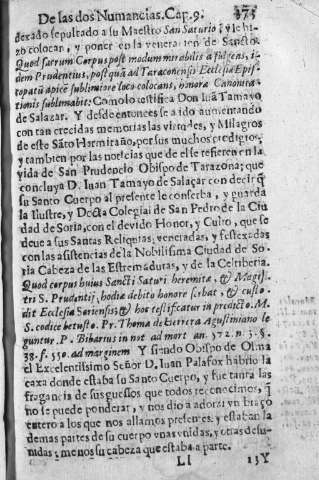 De las dos Numancias. Cap. 9. 373
dexado sepultado a su Maestro San Saturio; y le hi-
zo colocar, y poner en la veneracion de Sancto:
Quod sacrum Corpus post modum mirabilis a fulgens,
dem Prudentius, post quã ad Taraconensis Ecclesia Epis-
topatũ apice sublimiore loco colocans, honore Canoniza-
tionis sublimabit: Como lo testifica Don Iuã Tamayo
de Salazar. Y desde entonces se a ido aumentando
con tan crecidas memorias las virtudes, y Milagros
de este Sãto Hermitaño, por sus muchos prodigios,
y tambien por las noticias que de el se refieren en la
vida de San Prudencio Obispo de Tarazona; que
concluya D. Iuan Tamayo de Salaçar con decir q̃
su Santo Cuerpo al presente le conserba, y guarda
la Ilustre, y Docta Colegial de San Pedro de la Ciu
dad de Soria, con el devido Honor, y Culto, que se
deve a sus Santas Reliquias, veneradas, y festexadas
con las asistencias de la Nobilisima Ciudad de So-
ria Cabeza de las Estremaduras, y de la Celtiberia.
Quod corpus huius Sancti Saturi heremitæ, & Magis-
tri S. Prudentij, hodie debito honore serbat, & custo-
dit Ecclesia Soriensis; & hoc testificatur in predicto. M.
S. codice betusto. Pr. Thoma de Herrera Agustiniano le
guntur. P. Bibarius in not ad mort an. 572. n. 3. §.
38. f. 550. ad marginem Y siendo Obispo de Osma
el Excelentissimo Señor D. Iuan Palafox habrio la
caxa donde estaba su Santo Cuerpo, y fue tanta las
fragancia de sus guesos que todos reconocimos, q̃
no se puede ponderar, y nos dio a adorar vn braço
entero a los que nos allamos presentes. y estaban la
demas partes de su cuerpo vnas vnidas, y otras desu-
nidas; menos su cabeza que estaba a parte.
Ll 13 Y